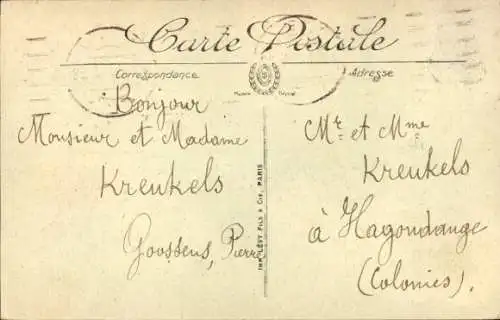 Carte Postale
Correspondance
Adresse
Bonjour
Monsieur et Madame
Kreukels
Goossens, Pierre
IMP. LÉVY FILS & CIE, PARIS
Mr et Mme
Kreukels
à Hagondange
(Colonies).